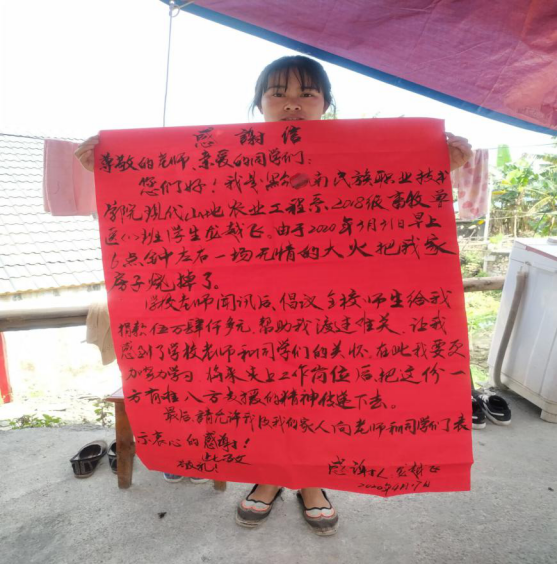 感謝信
尊敬的老师、亲爱的同学们:
您们好!我是黔 南民族职业技术
学院现代山地农业工程系,2018级畜牧兽
医(一)班学生 飞。由于2020年3月31日早上
点 钟左右一场无情的大火把我家
房子烧掉了。
学校老师闻讯后,倡议全校师生给我
捐款伍万肆仟多元,帮助我渡过难关,让我
感到了学校老师和同学们的关怀。在此我要更
加努力学习,将来走上工作岗位后,把这份一
方有难八方支援的精神传递下去。
最后,請允许我及我的家人向老师和同学们表
示衷心的感谢!
此致
敬礼!
感谢人
2020年4月 日